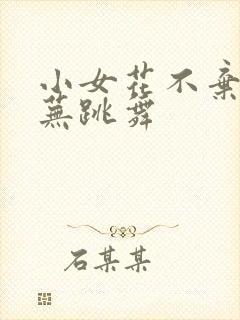 小女花不棄
蕪跳舞
石某某